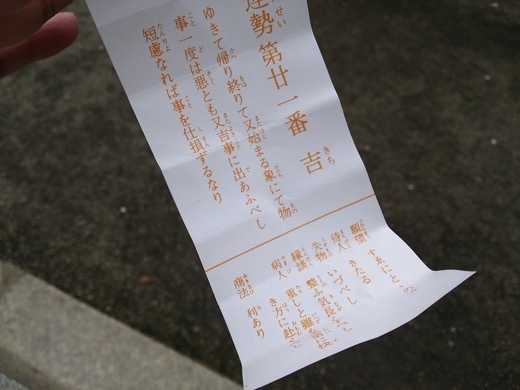 運勢 第廿一番 吉
ゆきて帰り終りて又始まる象にて物
事一度は悪とも又吉事に出あふべし
短慮なれば事を仕損するなり
願望 すゑにとゝ
待人 きたる
失物 いつべし
縁談 整ふ気長
病人 重しと雖
き方に赴
商法 利あり